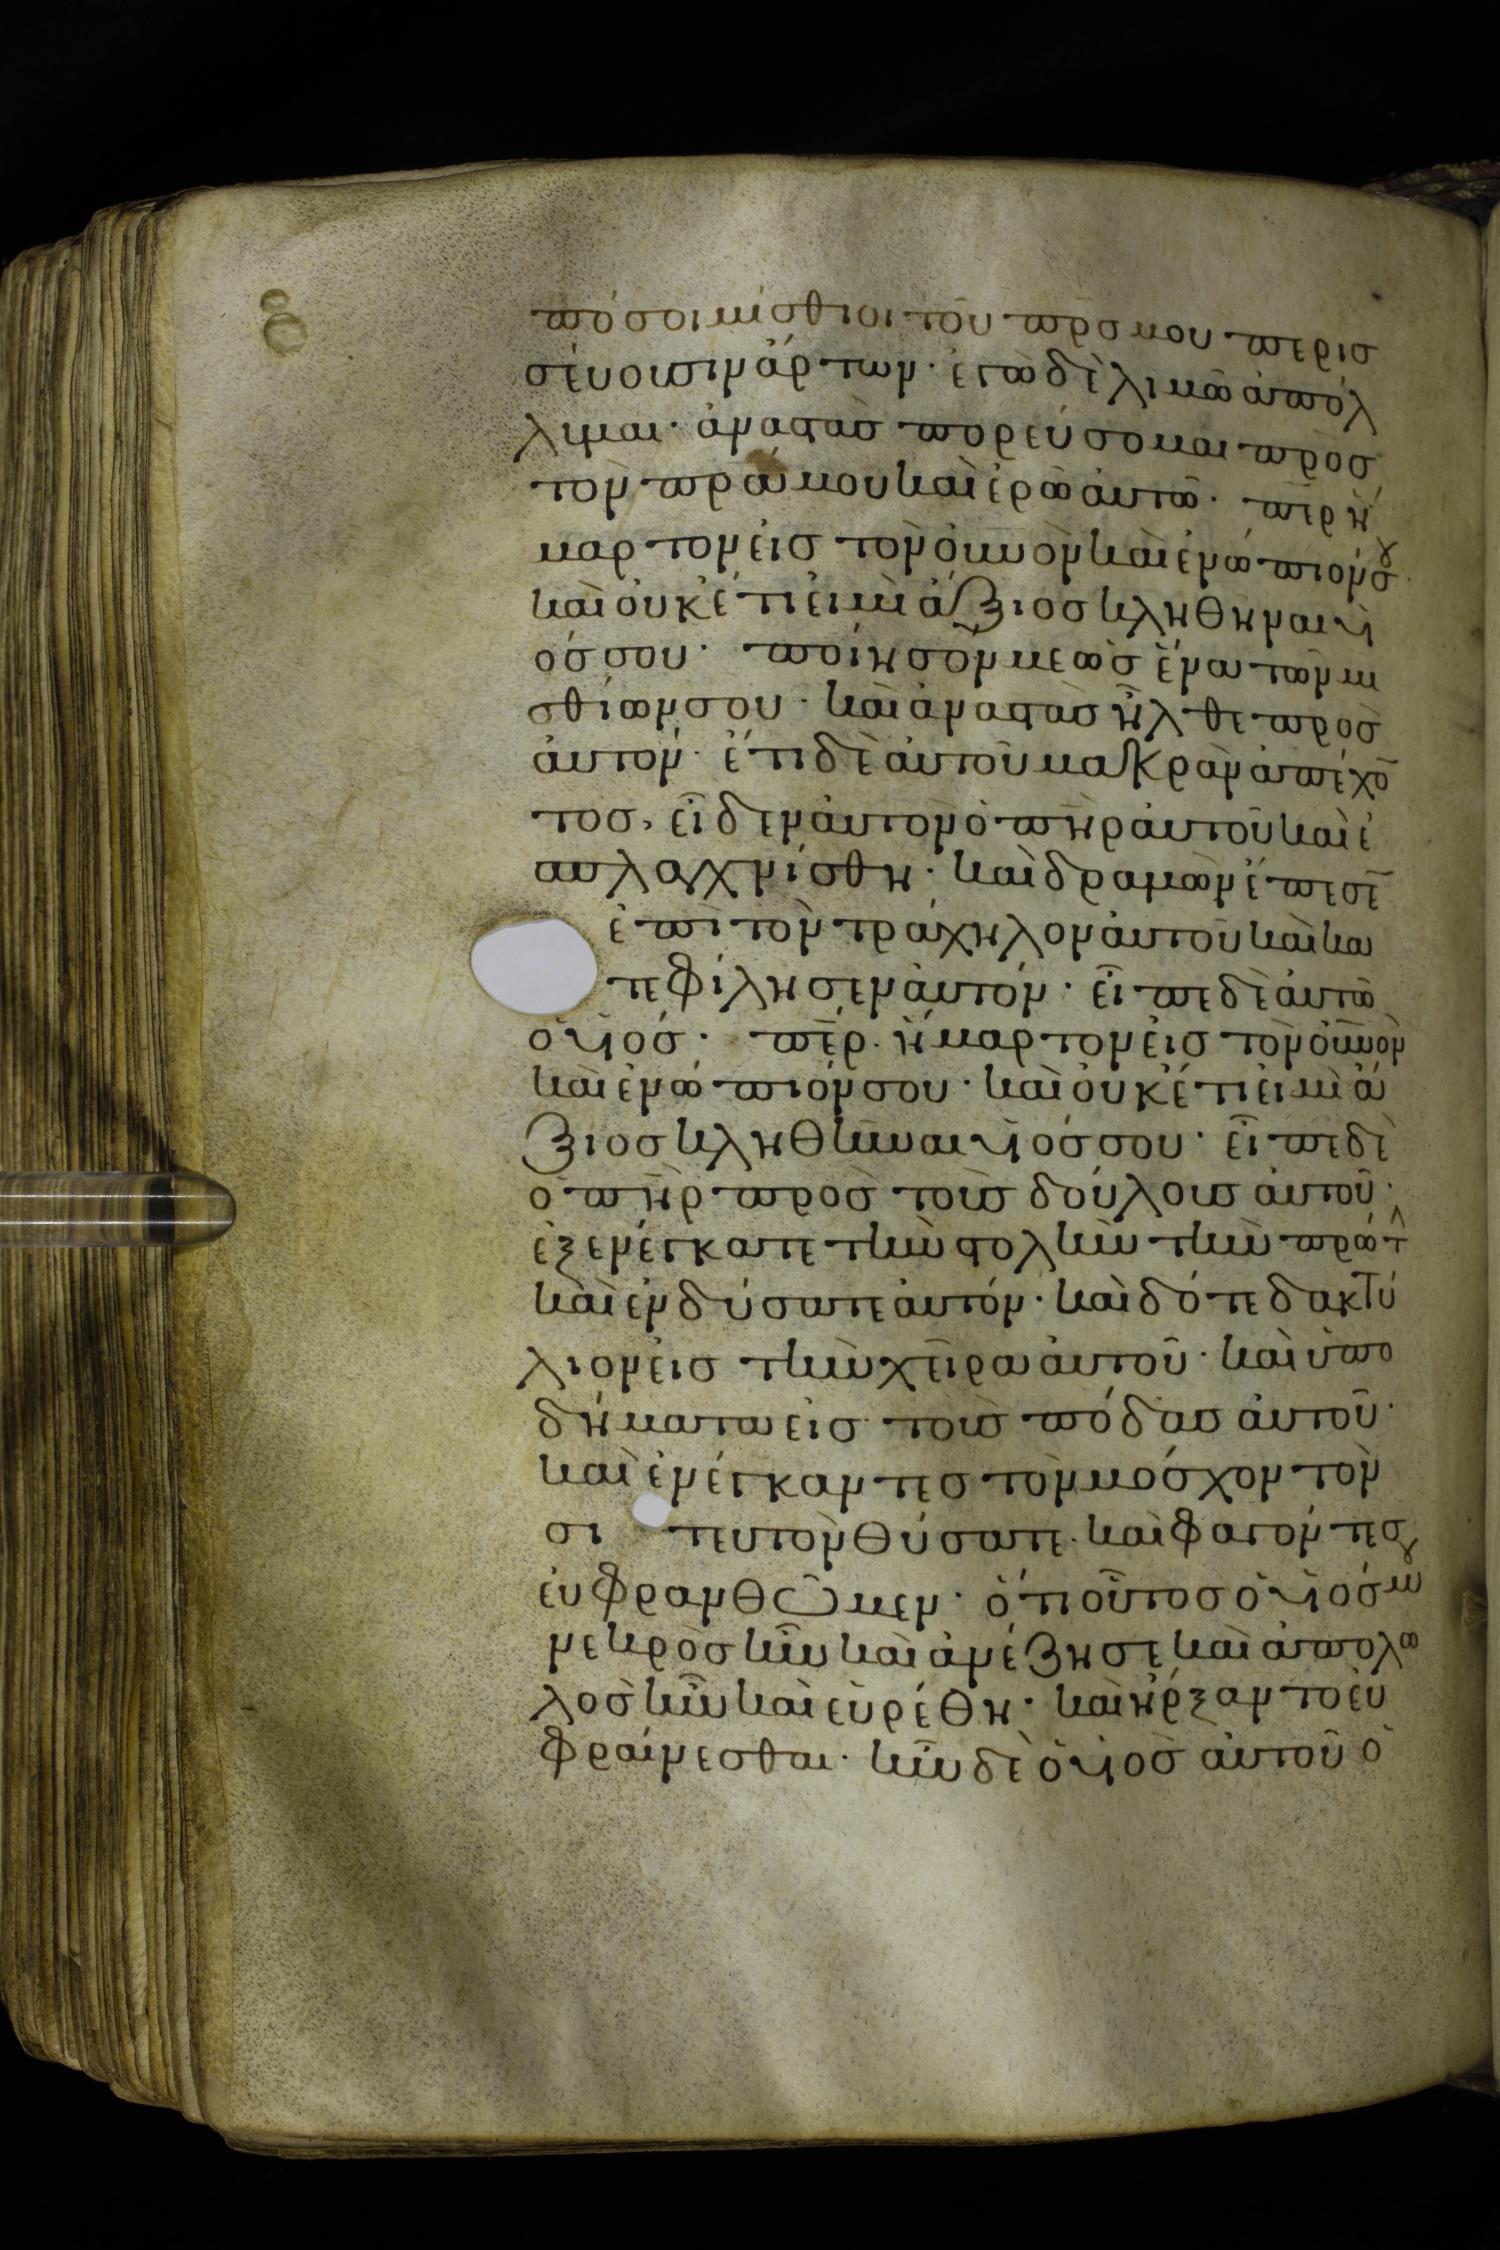 πόσοι μίσθιοι τοῦ πρσ μου περισ
σέυουσιν ἄρτων· ἐγὼ δὲ λιμῶ ἀπόλ
λυμαι· ἀναστὰσ πορεύσομαι πρὸσ
τὸν πρά μου καὶ ἐρῶ ἀυτῶ· περ ἥ
μαρτον εἰσ τὸν ὀυνὸν καὶ ἐνώπιόν σου
καὶ ὀυκέτι εἰμὶ ἄξιοσ κληθηναι ὑι
όσ σου· ποίησόν με ὡσ ἕνα τῶν μι
σθίων σου· καὶ ἀναστὰσ ἦλθε πρὸσ
ἀυτόν· ἔτι δὲ ἀυτοῦ μακρὰν ἀπέχο̅
τοσ, εἶδεν ἀυτὸν ὁ πηρ ἀυτοῦ καὶ ἐ
σπλαχνίσθη· καὶ δραμὼν ἔπεσε̅
ἐπὶ τὸν τράχηλον ἀυτοῦ καὶ κα
τεφίλησεν ἀυτόν· εἶπε δὲ ἀυτῶ
ὁ ὑιόσ· περ· ἥμαρτον εἰσ τὸν ὀυνὸν
καὶ ἐνώπιόν σου· καὶ ὀυκέτι εἰμὶ ἄ
ξιοσ κληθῆναι ὑιόσ σου· εἶπε δὲ
ὁ πηρ πρὸσ τοὺσ δούλουσ ἀυτοῦ·
ἐξενέγκατε τὴν στολὴν τὴν πρώτ
καὶ ἐνδύσατε ἀυτόν· καὶ δότε δακτύ
λιον εἰσ τὴν χεῖρα ἀυτοῦ· καὶ ὑπο
δήματα εἰσ τοὺσ πόδασ ἀυτοῦ·
καὶ ἐνέγκαντεσ τὸν μόσχον τὸν
σιτευτὸν θύσατε· καὶ φαγόντεσ
ἐυφρανθῶμεν· ὅτι οὗτοσ ὁ ὑιόσ μου
νεκρὸσ ἦν καὶ ἀνέζησε καὶ ἀπολω
λοσ ἦν καὶ εὑρέθη· καὶ ἤρξαντο ἐυ
φραίνεσθαι· ἦν δὲ ὁ ὑιὸσ ἀυτοῦ ὁ